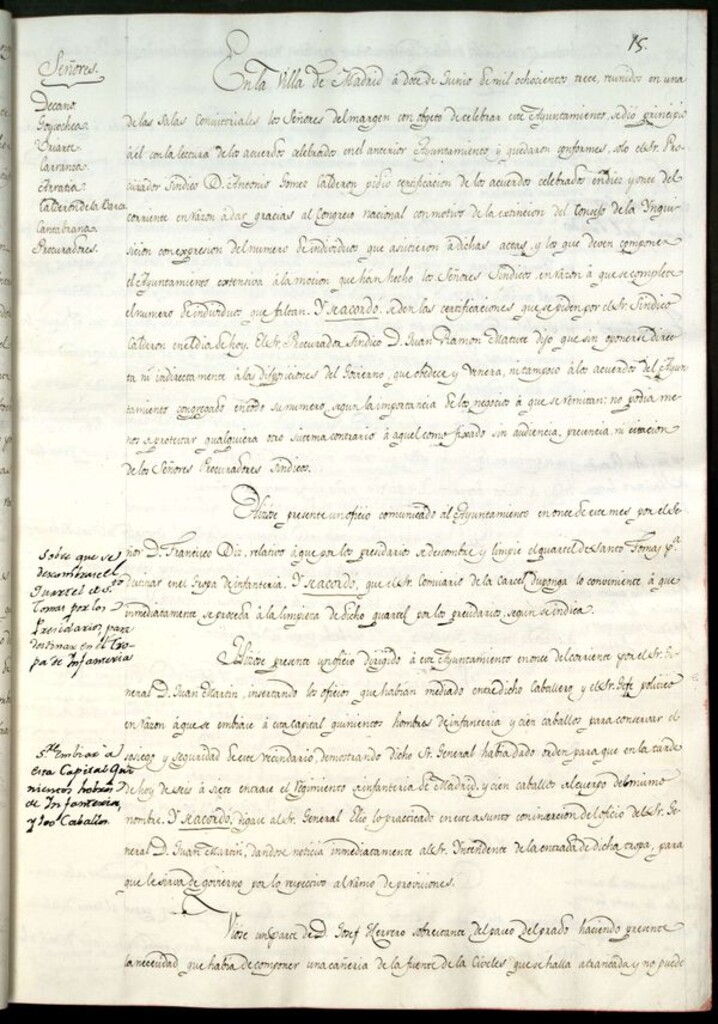 15.
Señores.
Decano.
Goycochea.
Uriarte.
Larranza.
Arratia.
Calderon de la Barca
Cantabrana.
Procuradores.
En la Villa de Madrid á doce de Junio de mil ochocientos trece, reunidos en una
de las Salas Consistoriales los Señores del margen con objeto de celebrar este Ayuntamiento, se dió principio
á él con la lectura de los acuerdos celebrados en el anterior Ayuntamiento y quedaron conformes, solo el Sr. Pro-
curador Sindico D. Antonio Gomez Calderon pidio certificacion de los acuerdos celebrados en diez y once del
corriente en razon á dar gracias al Congreso nacional con motivo de la extincion del Consejo de la Ynqui-
sicion con expresion del numero de individuos que asistieron á dichas actas, y los que deven componer
el Ayuntamiento extensiva á la mocion que han hecho los Señores Sindicos, en razon á que se complete
el numero de individuos que faltan. Y se acordó, se den las certificaciones que se piden por el Sr. Sindico
Calderon en el dia de hoy. El Sr. Procurador Sindico D. Juan Ramon Matute dijo que sin oponerse direc-
ta ni indirectamente á las disposiciones del Govierno, que obedece y venera, ni tampoco á los acuerdos del Ayun-
tamiento congregado en todo su numero, segun la importancia de los negocios á que se remitan: no podia me-
nos de protestar qualquiera otro sistema contrario á aquel como fixado sin audiencia, presencia, ni citacion
de los Señores Procuradores Sindicos.
Hizose presente un oficio comunicado al Ayuntamiento en once de este mes por el Se-
ñor D. Francisco Diz, relativo á que por los presidarios se descombre y limpie el quartel de Santo Tomas pª
destinar en el tropa de infanteria. Y se acordó, que el Sr. Comisario de la Carcel disponga lo conveniente á que
inmediatamente se proceda á la limpieza de dicho quartel por los presidarios, segun se indica.
Sobre que se
descombrase el
Quartel de Sto
Tomas por los
Presidarios para
destinar en el Tro-
pa de Infanteria
Hizose presente un oficio dirigido á este Ayuntamiento en once del corriente por el Sr. Ge-
neral D. Juan Martin, insertando los oficios que habian mediado entre dicho Caballero y el Sr. Gefe politico
en razon á que se embiase á esta Capital quinientos hombres de infanteria y cien caballos para conservar el
sosiego y seguridad de este vecindario, demostrando dicho Sr. General habia dado orden para que en la tarde
de hoy de seis á siete entrase el Regimiento de infanteria de Madrid, y cien caballos del cuerpo del mismo
nombre. Y se acordó, digase al Sr. General Elio lo practicado en este asunto con insercion del oficio del Sr. Ge-
neral D. Juan Martin, dandose noticia inmediatamente al Sr. Yntendente de la entrada de dicha tropa, para
que le sirva de govierno por lo respectivo al ramo de provisiones.
Sre Embiar á
esta Capital Qui-
nientos hobres
de Infanteria,
y 100 Caballos.
Viose un parte de D. Josef Herrero sobrestante del paseo del prado haciendo presente
la necesidad que habia de componer una cañeria de la fuente de la Civeles que se halla atrancada y no puede